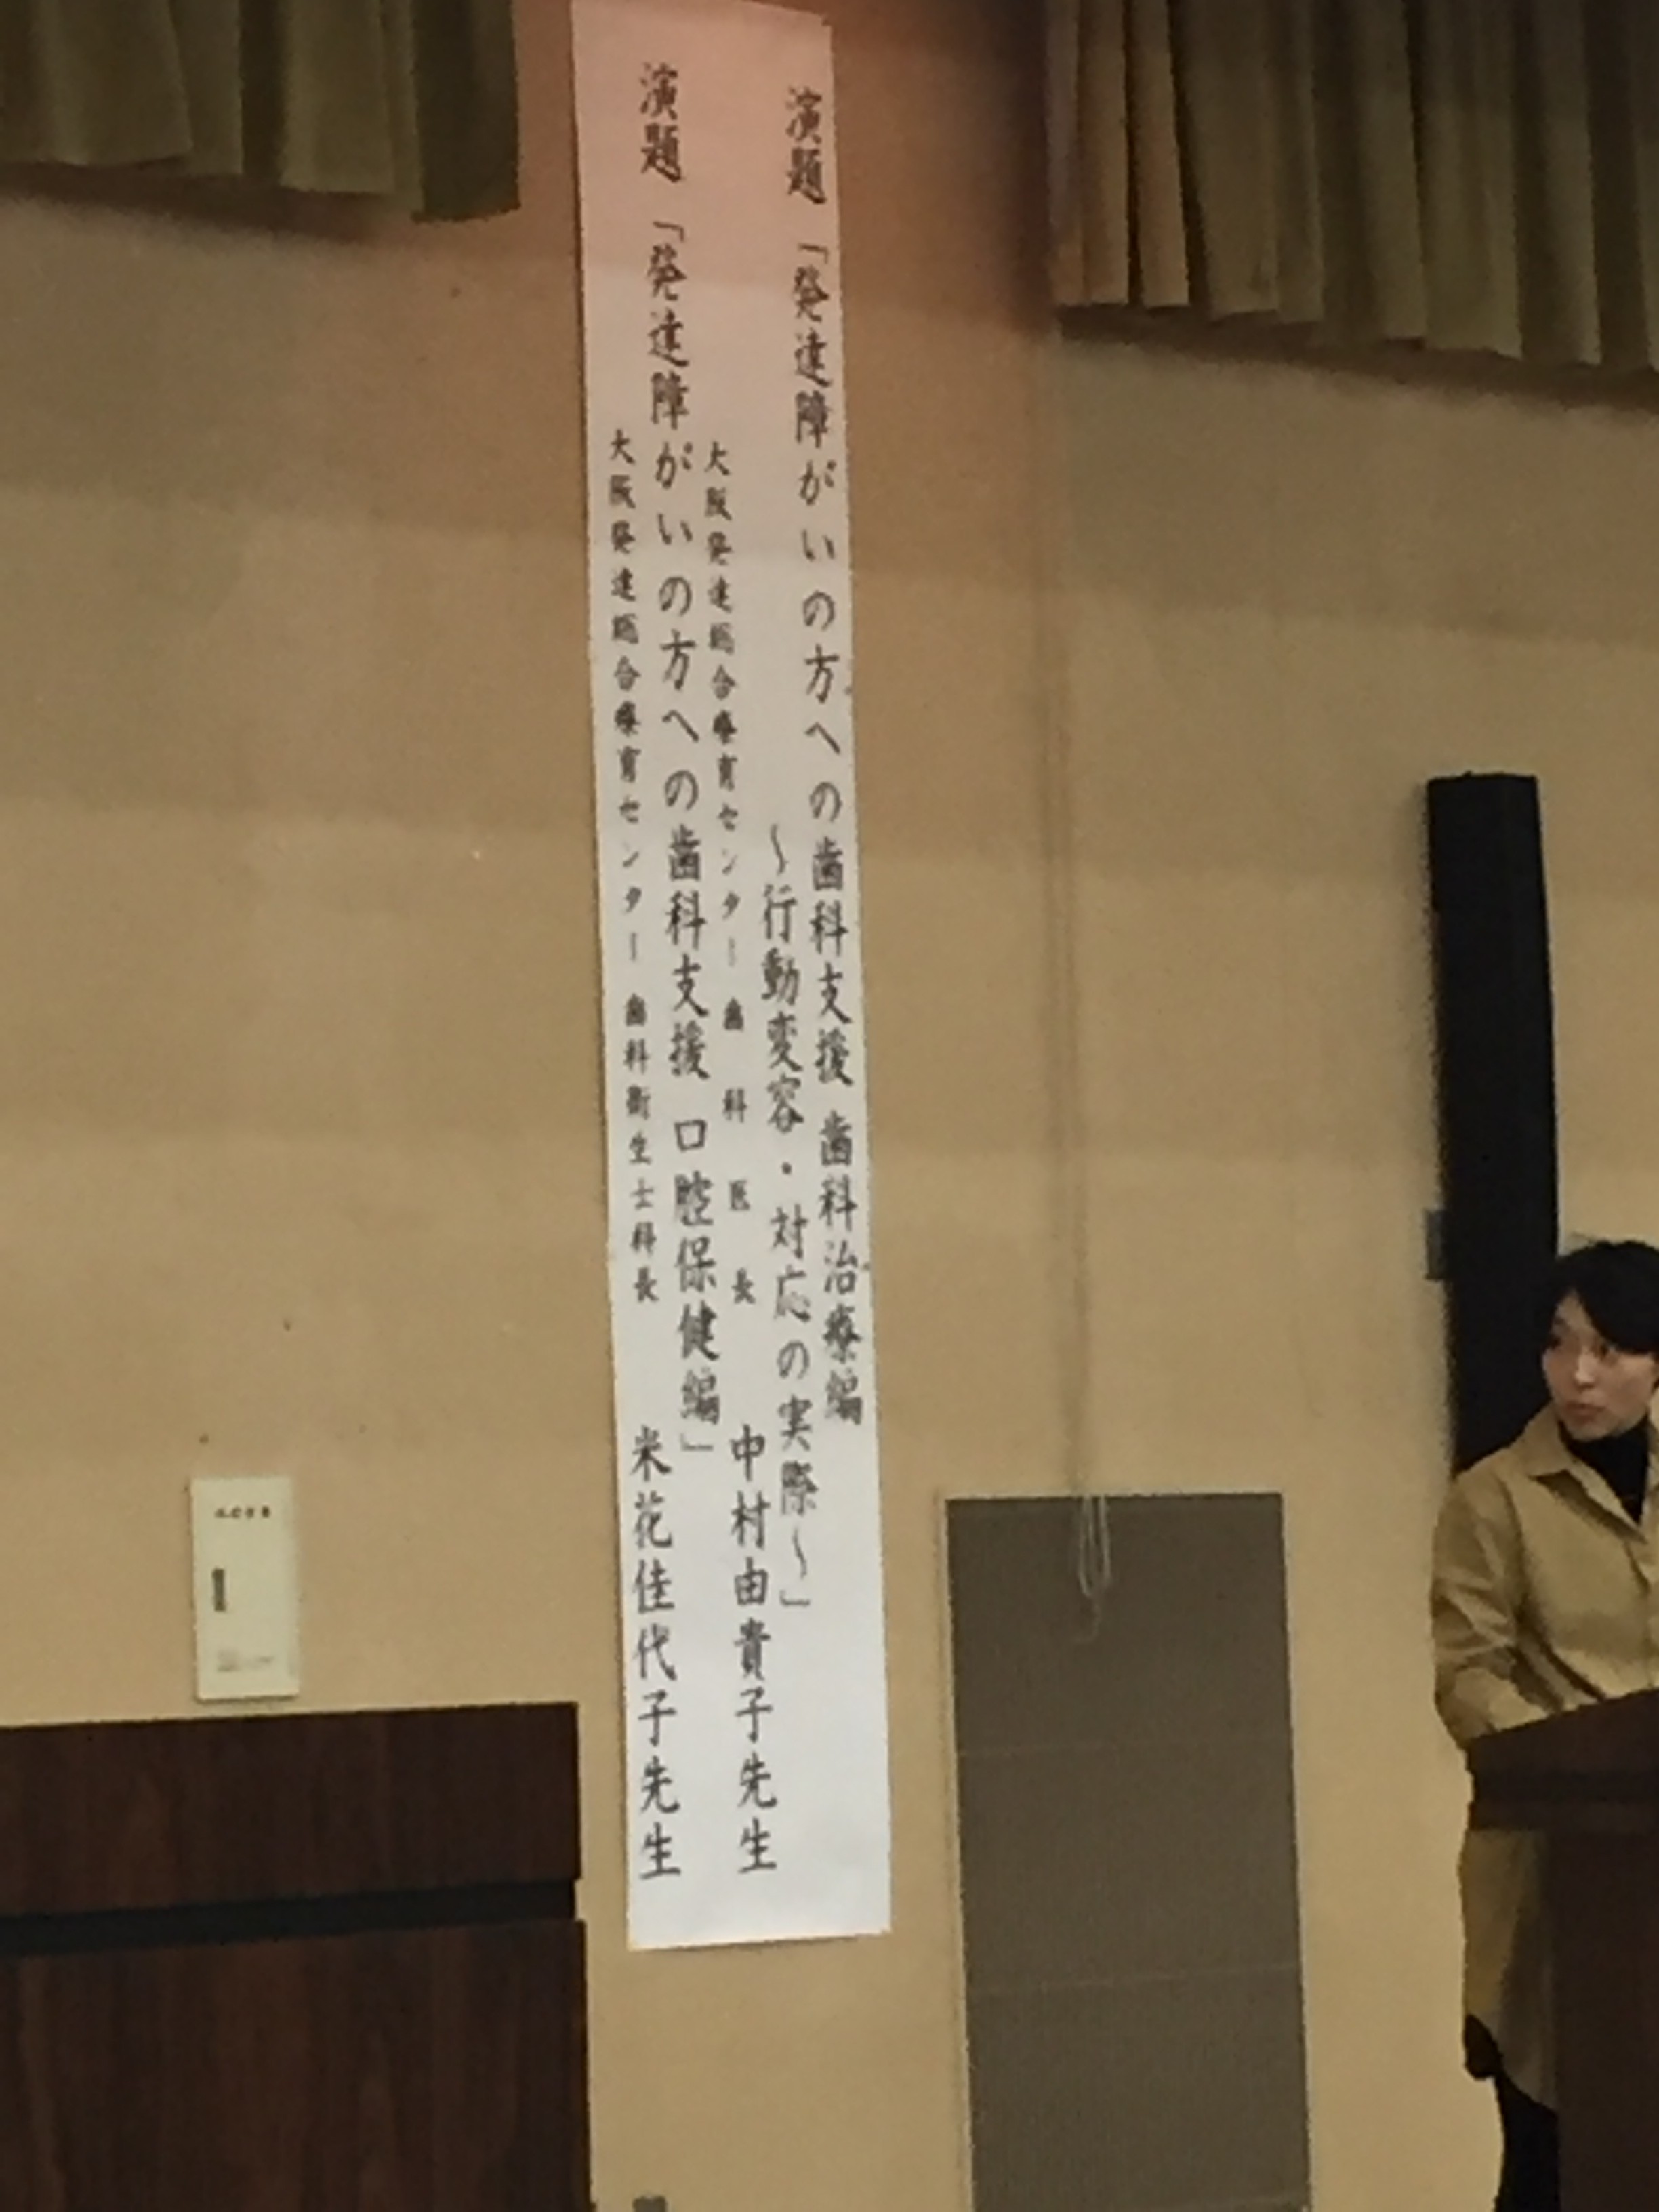 演題 「発達障がいの方への歯科支援 歯科治療編
～行動変容・対応の実際～」
大阪発達総合療育センター 歯科医長 中村由貴子先生
演題 「発達障がいの方への歯科支援 口腔保健編」
大阪発達総合療育センター 歯科衛生士科長 米花佳代子先生